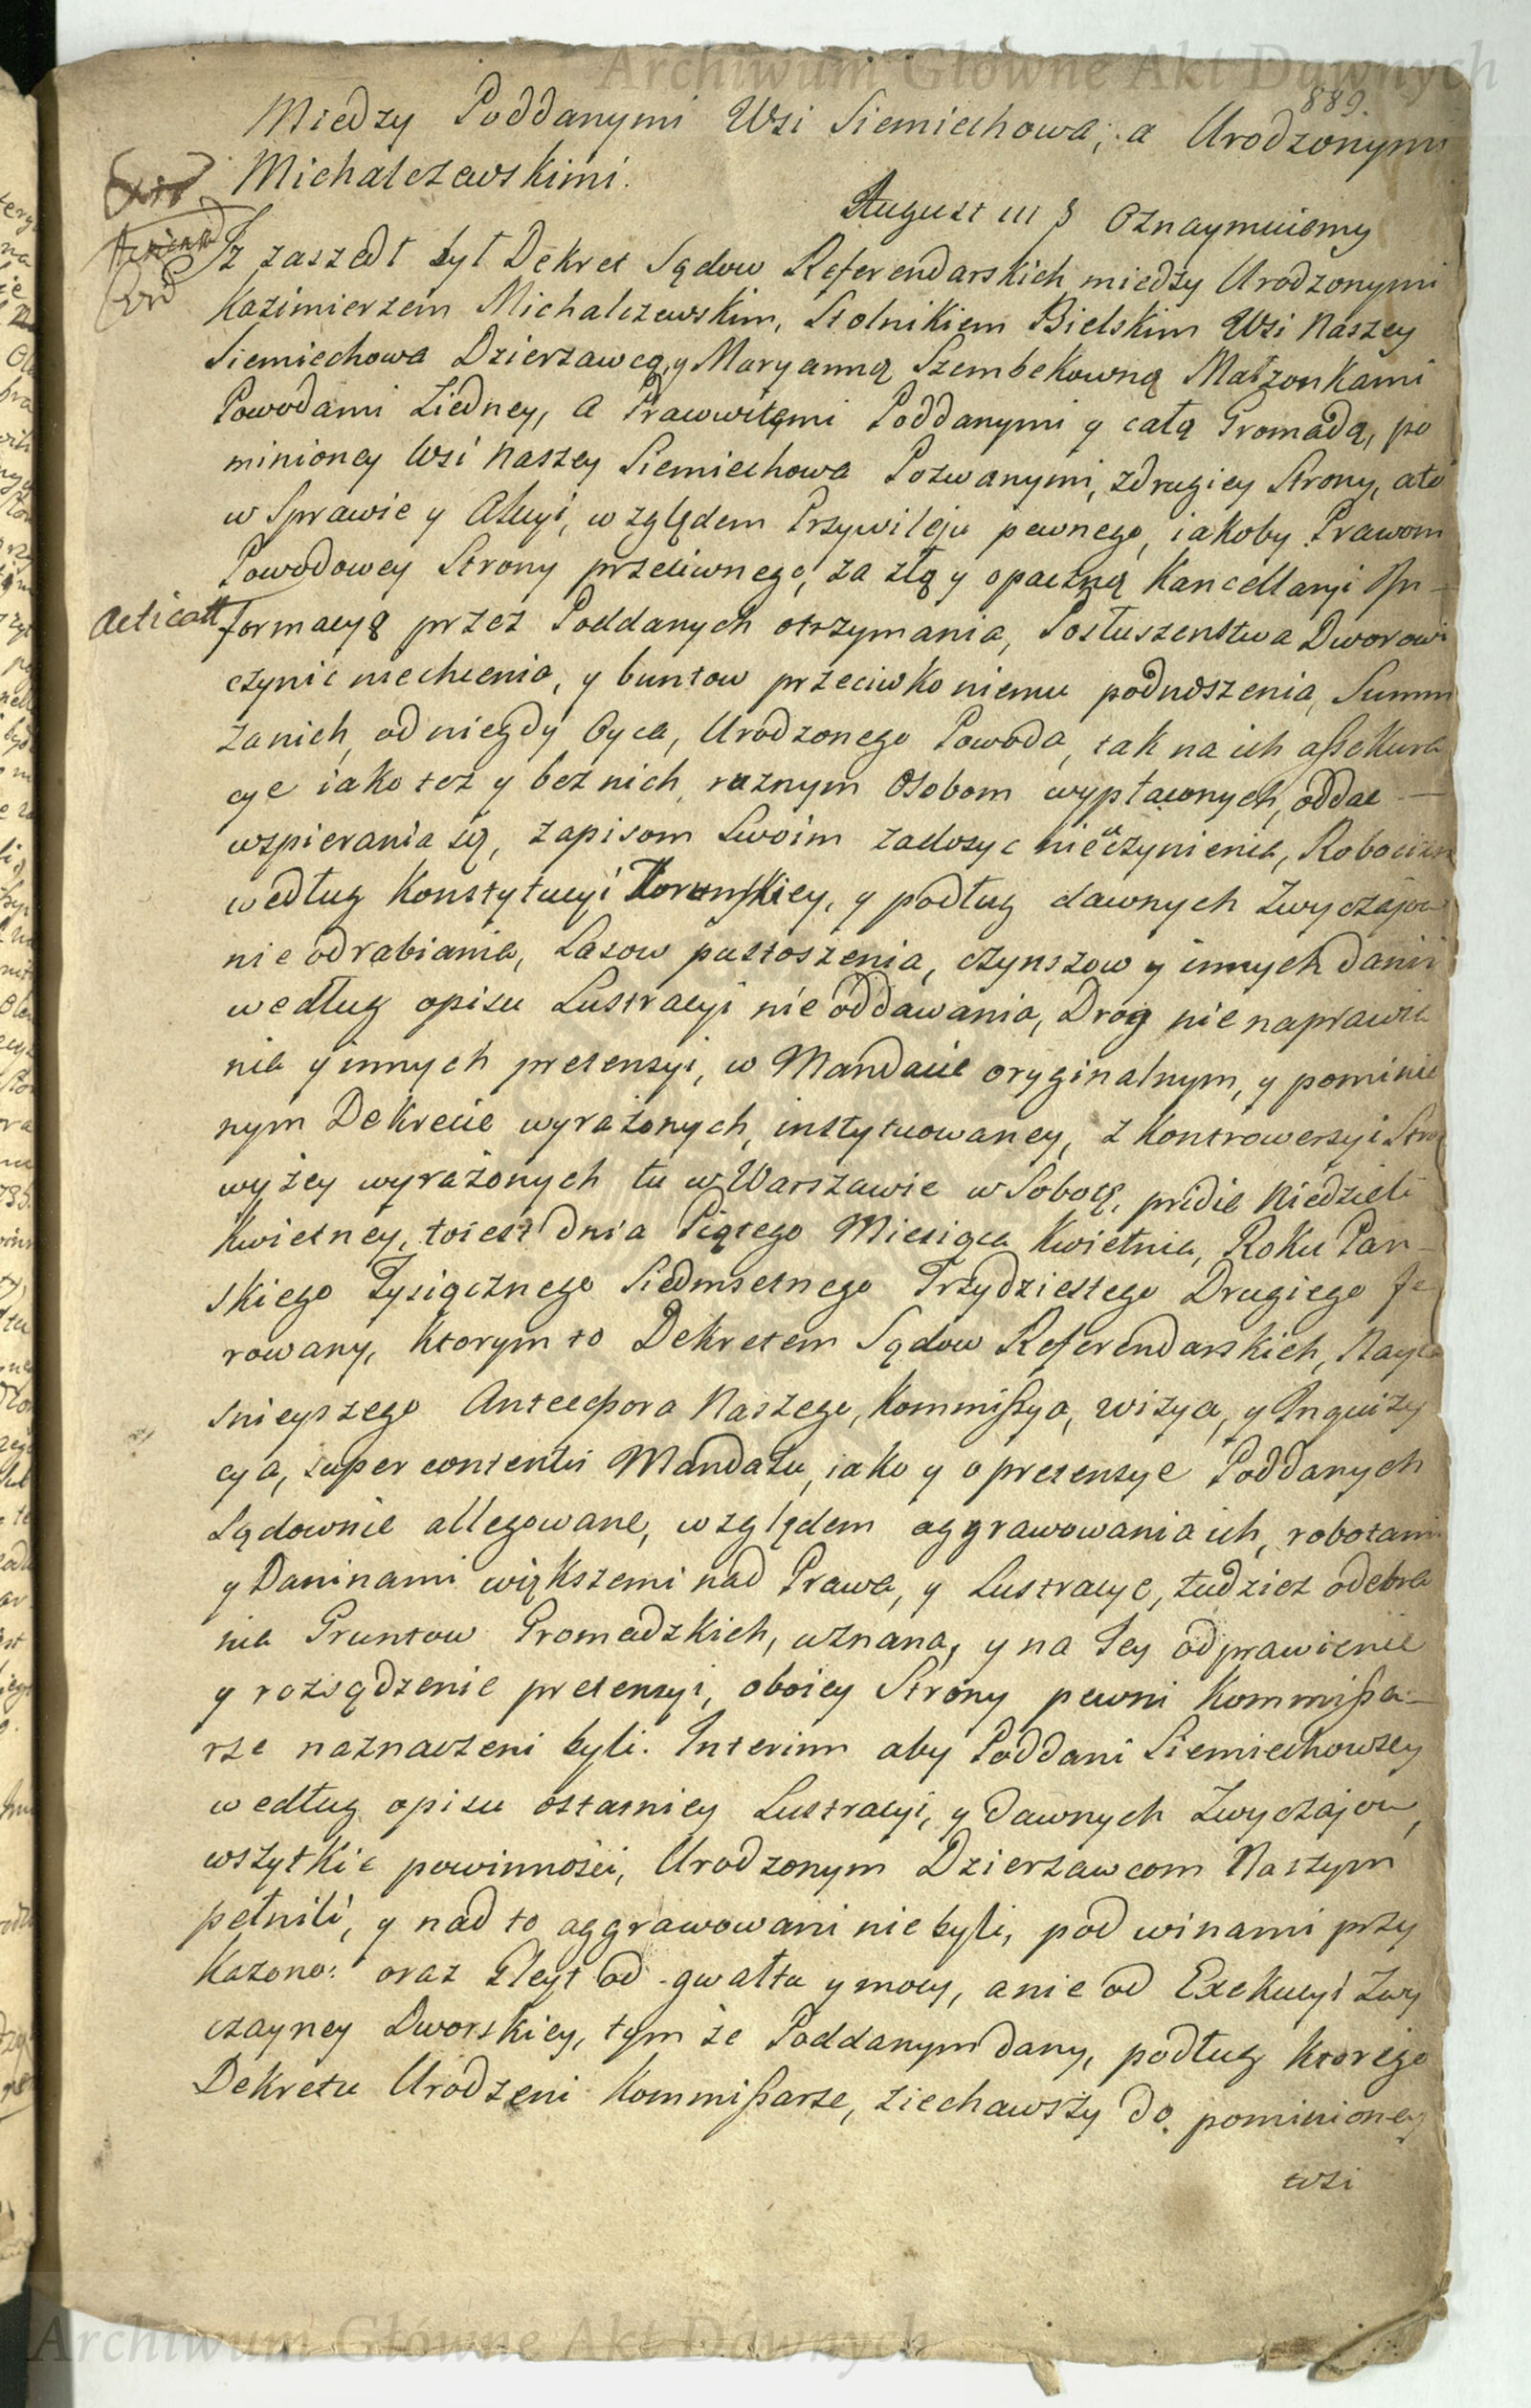 Archiwum Główne Akt Dawnych
889.
Miedzy Poddanymi Wsi Siemiechowa, a Urodzonymi
Michalczewskimi.
August III Oznaymuiemy
Iz zaszedł był Dekret Sądow Referendarskich miedzy Urodzonymi
Kazimierzem Michalczewskim, Stolnikiem Bielskim Wsi Naszey
Siemiechowa Dzierzawcą, y Maryanną Szembekowną Małzonkami
Powodami ziedney, a Prawowitymi Poddanymi y całą Gromadą, po
minioney Wsi Naszey Siemiechowa Pozwanymi, zdrugiey Strony, a to
w Sprawie y Akcyi, względem Przywileju pewnego, iakoby Prawom
Powodowey Strony przeciwnego, za złą y opaczną Kancellaryi In-
Acticatt formacyą przez Poddanych otrzymania, Posłuszenstwa Dworowi
czynic niechcenia, y buntow przeciwko niemu podnoszenia, Summ
zanich, od niegdy Oyca, Urodzonego Powoda, tak na ich assekura
cye iako też y bez nich roznym Osobom wypłaconych, oddac —
wzpierania się, zapisom Swoim zadosyc nieuczynienia, Robocizn
według Konstytucyi Torunskiey, y podług dawnych Zwyczajow
nie odrabiania, Lasow pustoszenia, czynszow y innych danin
według opisu Lustracyi nie oddawania, Drog nie naprawia
nia y innych pretensyi, w Mandacie oryginalnym, y pominio
nym Dekrecie wyrażonych, instytuowaney, z Kontrowersyi Stron
wyżey wyrażonych tu w Warszawie w Sobotę, pridie Niedzieli
Kwietney, toiest dnia Piątego Miesiąca Kwietnia, Roku Pan-
skiego Tysiącznego Siedmsetnego Trzydziestego Drugiego fe
rowany, Ktorym to Dekretem Sądow Referendarskich, Nayia
snieyszego Antecessora Naszego, Kommissya, wizya, y Inquizy
cya, super contentis Mandatu, iako y o pretensye Poddanych
Sądownie allegowane, względem aggrawowania ich, robotami
y Daninami większemi nad Prawa, y Lustracye, tudziez odebra
nia Gruntow Gromadzkich, uznana, y na Jey odprawienie
y rozsądzenie pretensyi, oboiey Strony pewni Kommissa-
rze naznaczeni byli. Interim aby Poddani Siemiechowscy
według opisu ostatniey Lustracyi, y dawnych Zwyczajow,
wszytkie powinności, Urodzonym Dzierzawcom Naszym
pełnili, y nad to aggrawowani nie byli, pod winami przy
Kazano: oraz Gleyt od gwałtu y mocy, a nie od Exekucyi Zwy
czayney Dworskiey, tym że Poddanym dany, podług Ktorego
Dekretu Urodzeni Kommissarze, ziechawszy do pominioney
wsi
Archiwum Główne Akt Dawnych